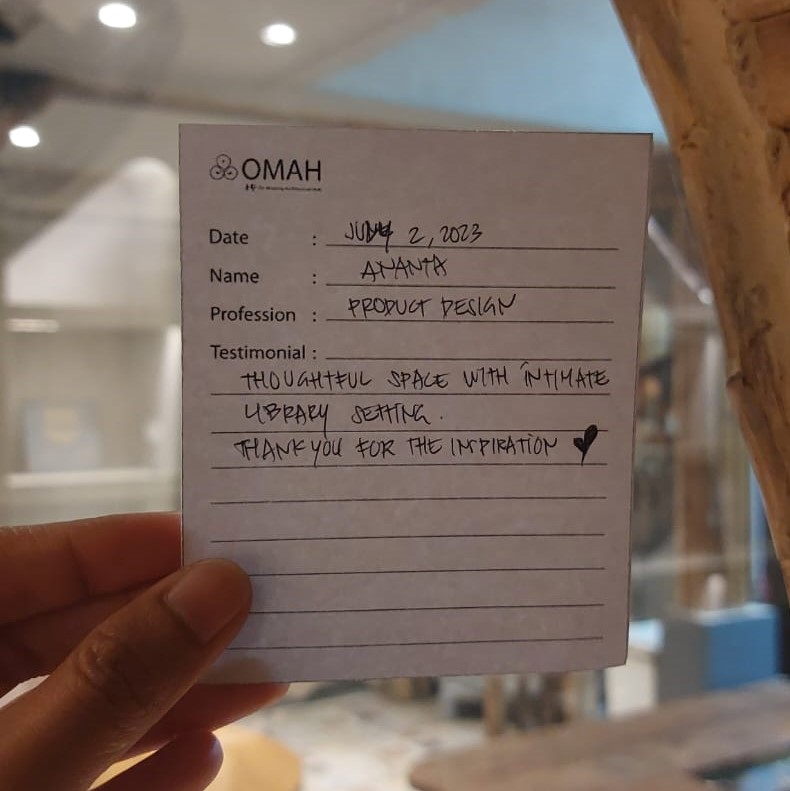 OMAH
Date : JULY 2, 2023
Name : ANANTA
Profession : PRODUCT DESIGN
Testimonial :
THOUGHTFUL SPACE WITH INTIMATE
LIBRARY SETTING.
THANK YOU FOR THE INSPIRATION ♥